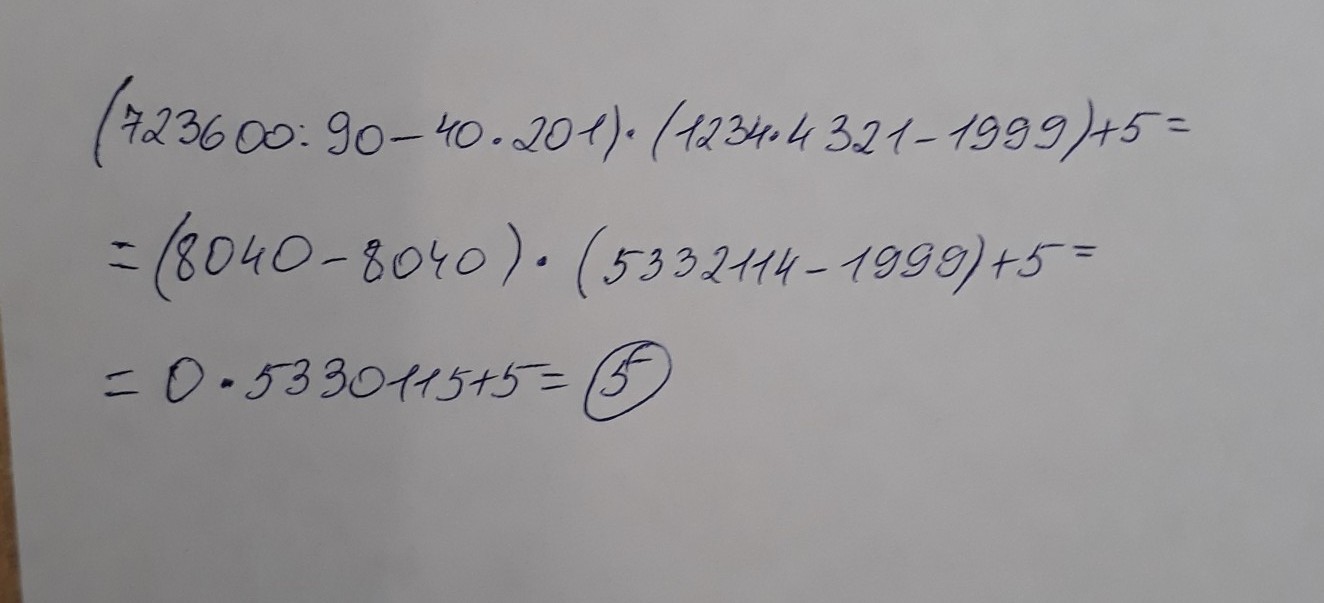 (723600:90-40·201)·(1234·4321-1999)+5=
=(8040-8040)·(5332114-1999)+5=
=0·5330115+5=5